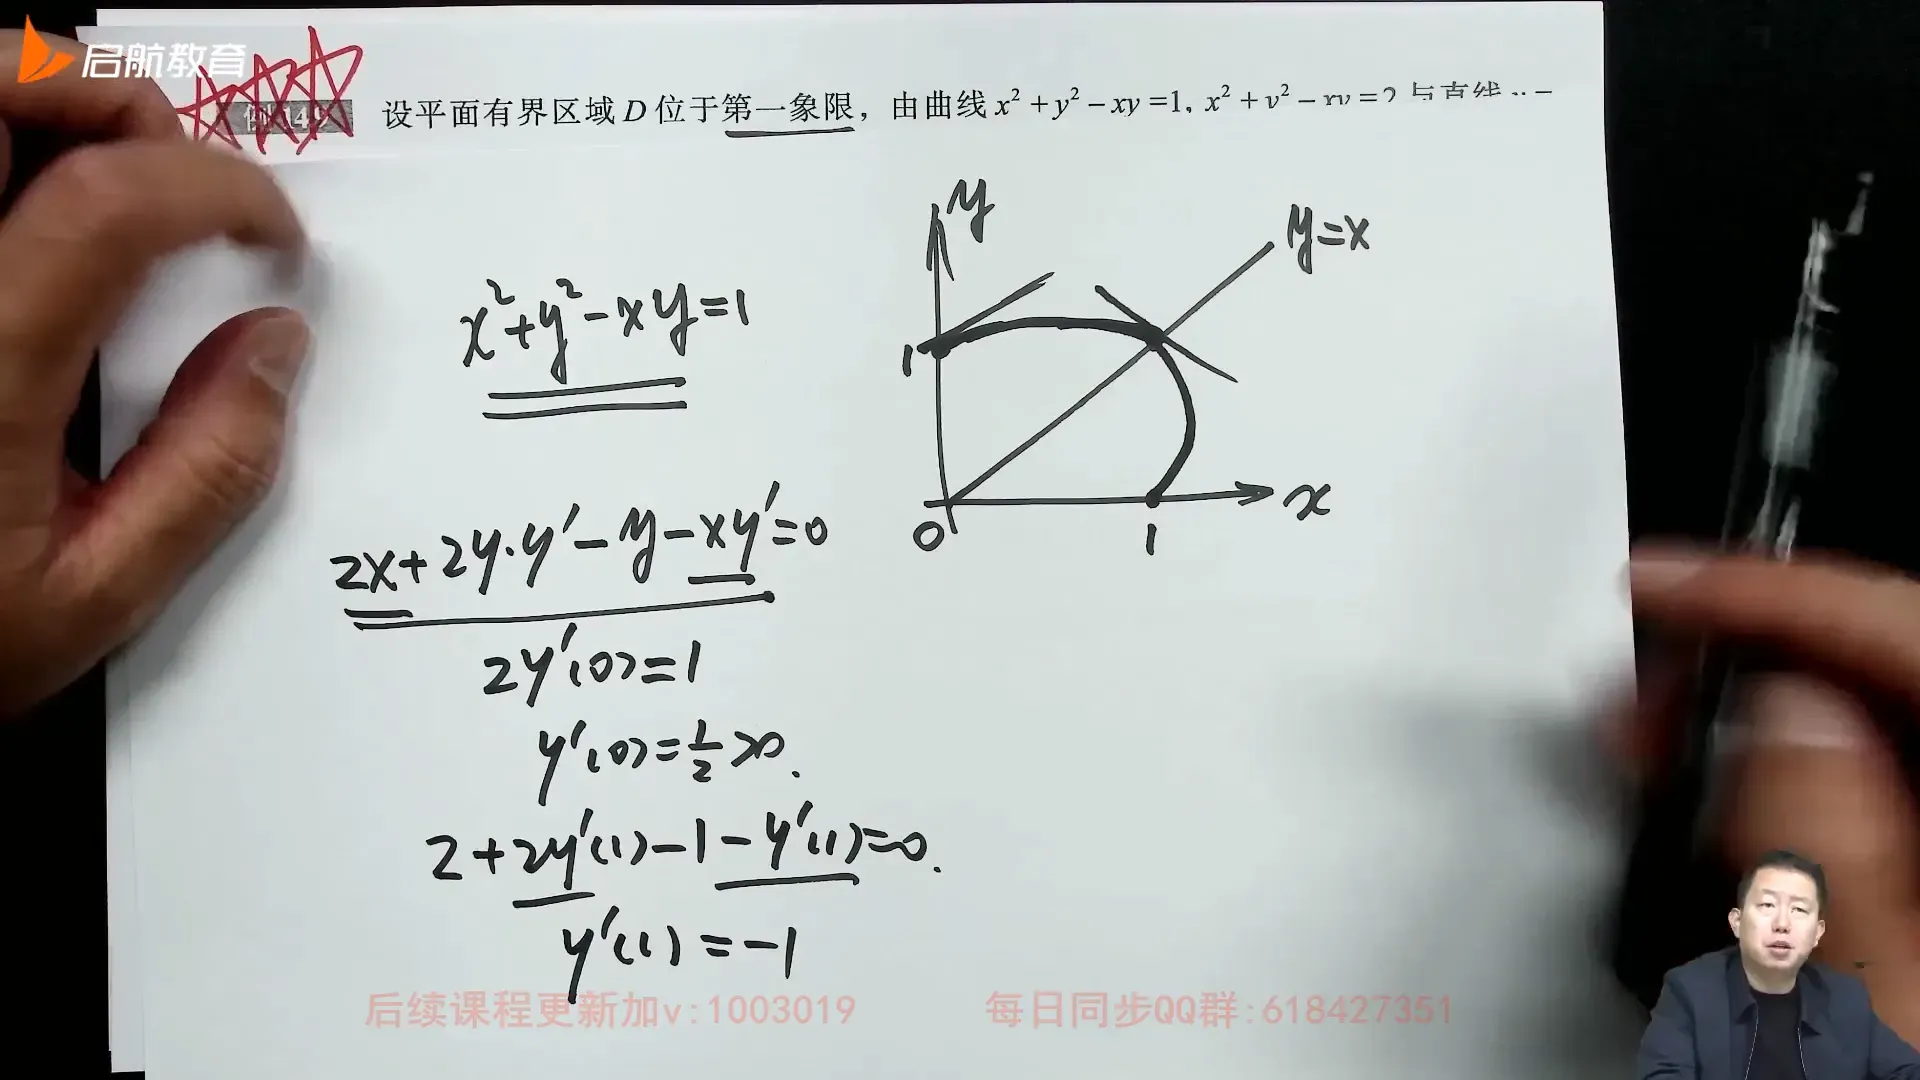 启航教育
设平面有界区域 D 位于第一象限，由曲线 x² + y² − xy = 1, x² + y² − xy = 2 与直线
y
y=x
x²+y²−xy=1
1
2x+2y·y′−y−xy′=0
x
0
1
2y′(0)=1
y′(0)=1/2>0.
2+2y′(1)−1−y′(1)=0.
y′(1)=−1
后续课程更新加v:1003019
每日同步QQ群:618427351